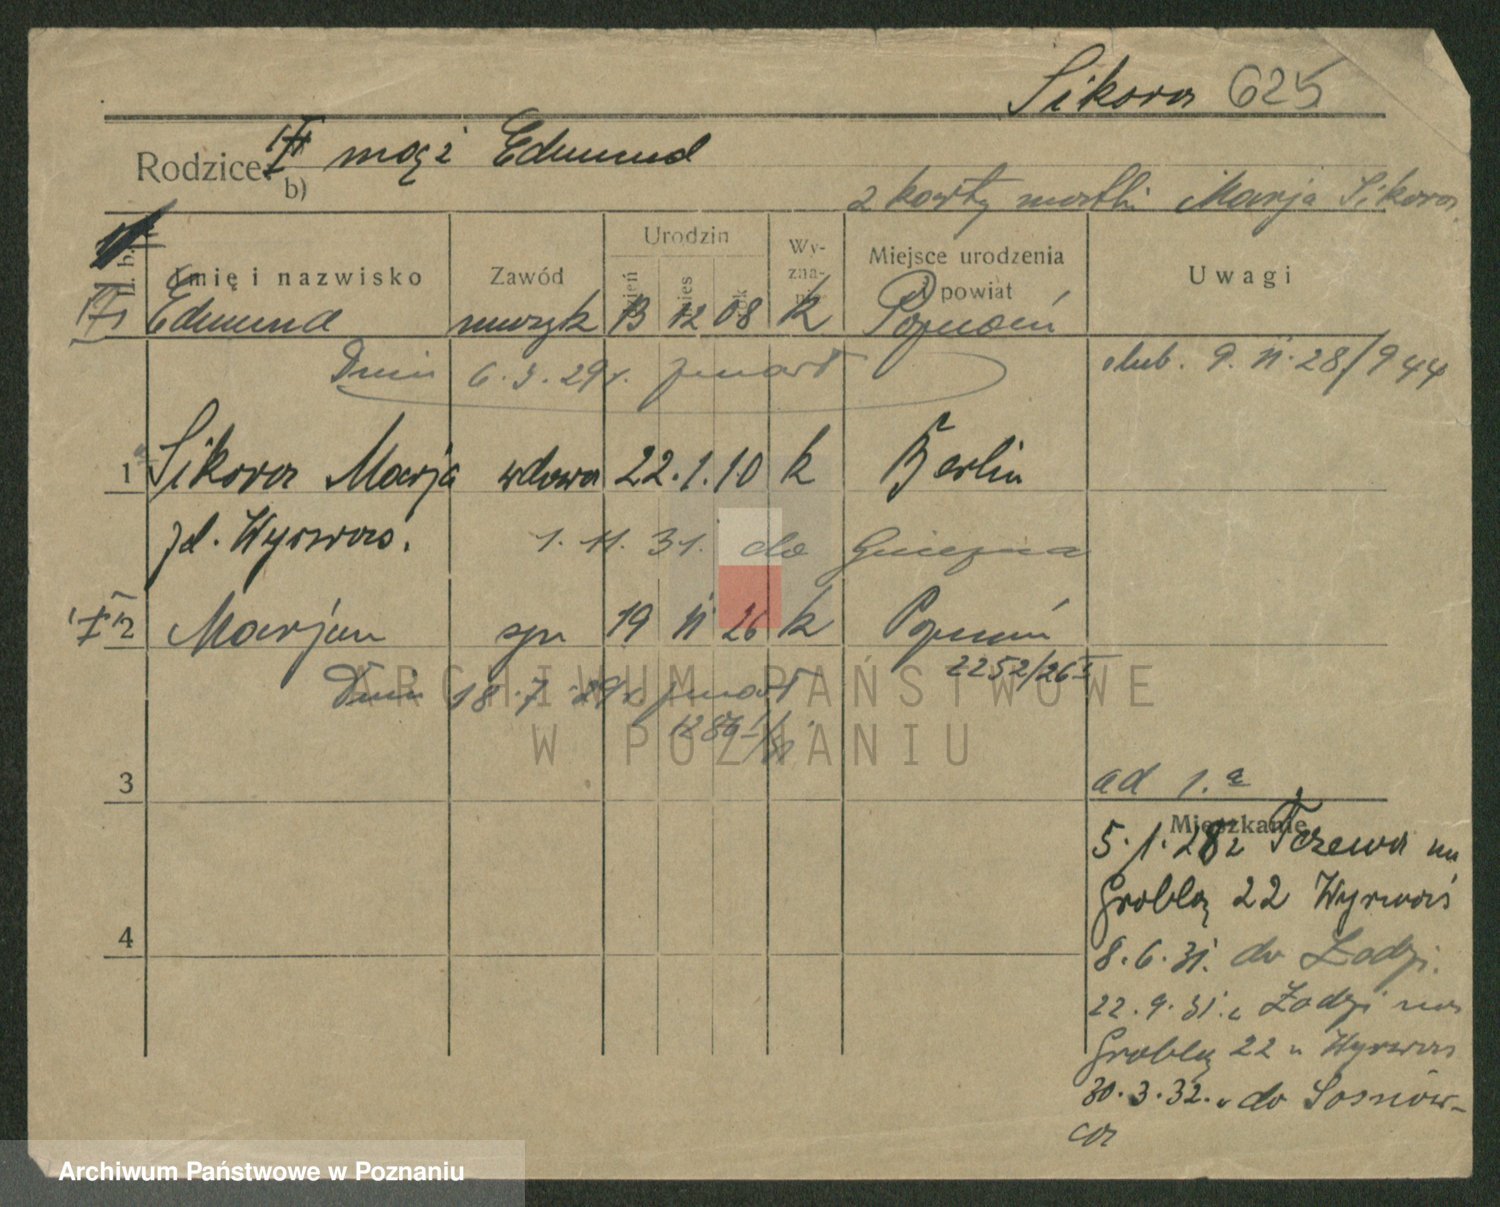 Sikora 625
Rodzice: mąż Edmund
b)
z karty matki Marja Sikora
L. b. Imię i nazwisko Zawód Urodzin dzień mies rok Wyznanie Miejsce urodzenia i powiat Uwagi
Edmund muzyk 13 12 08 k Poznań
Dnia 6.3.29 r. zmarł ślub. 9. 11. 28/944
1 Sikora Marja wdowa 22.1.10 k Berlin
zd. Wyrwas. 1. 11. 31. do Gniezna
2 Marjan syn 19 11 26 k Poznań
2252/26
Dnia 18.7.29 r. zmarł
ARCHIWUM PAŃSTWOWE
W POZNANIU
3
ad 1.
Mieszkanie
5.1.28 z Tczewa na
Groblą 22 Wyrwas
4
8.6.31. do Łodzi.
22.9.31. z Łodzi na
Groblą 22 u Wyrwas
30.3.32. do Sosnow-
ca
Archiwum Państwowe w Poznaniu